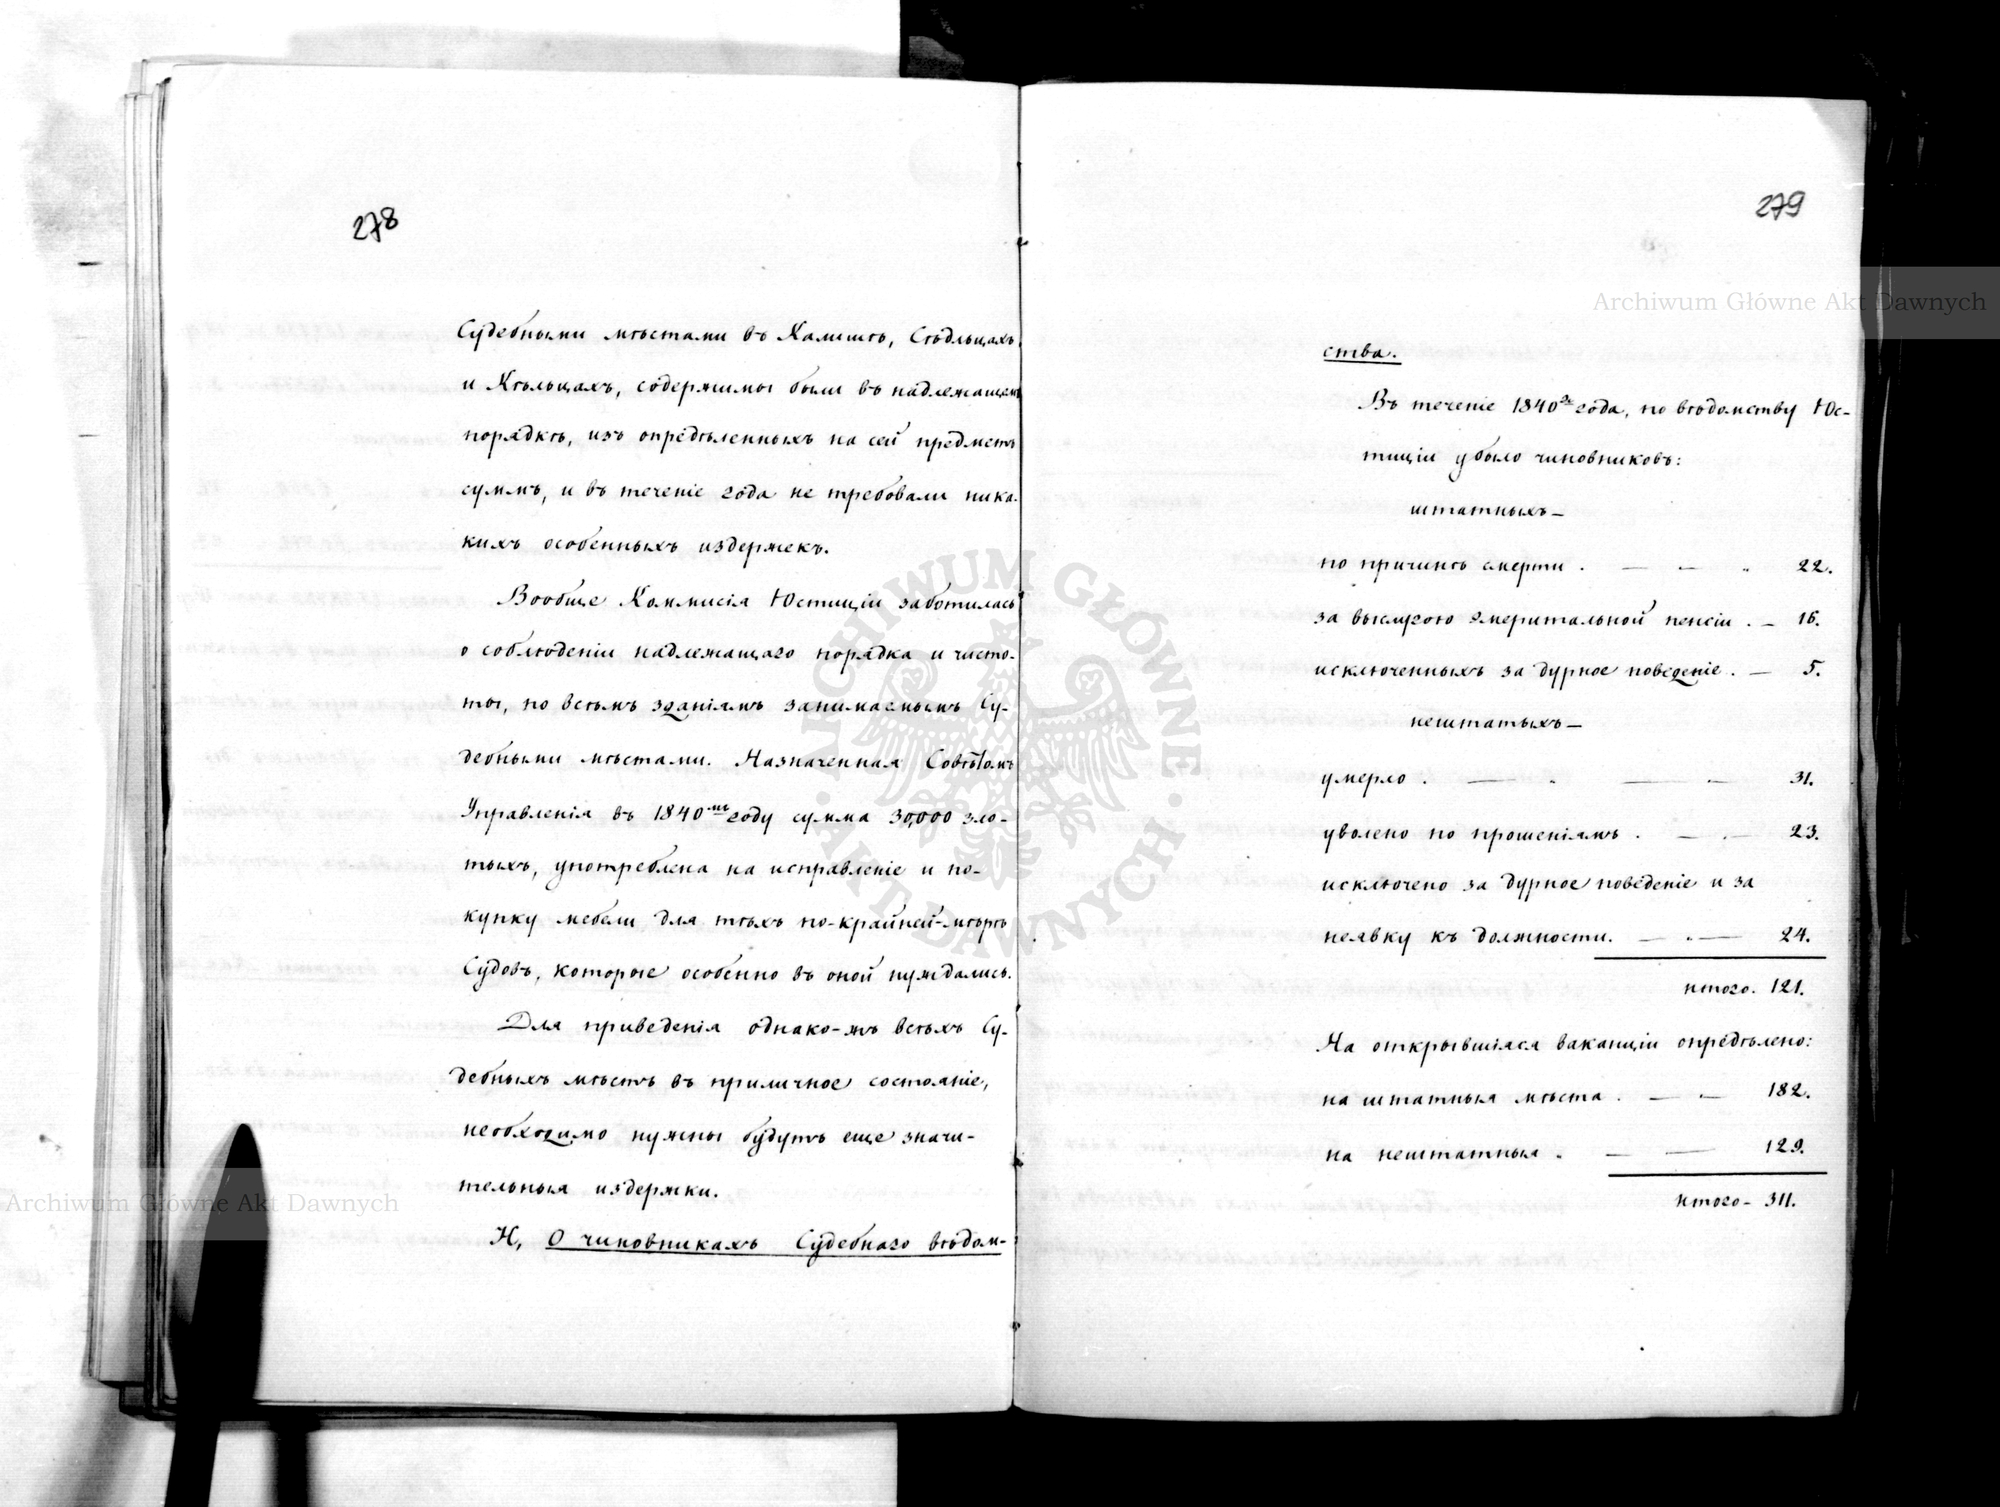 278
Судебными мѣстами въ Калишѣ, Сѣдльцахъ
и Кѣльцахъ, содержимы были въ надлежащемъ
порядкѣ, изъ опредѣленныхъ на сей предметъ
суммъ, и въ теченіе года не требовали ника-
кихъ особенныхъ издержекъ.
Вообще Коммисія Юстиціи заботилась
о соблюденіи надлежащаго порядка и чисто-
ты, по всѣмъ зданіямъ занимаемымъ Су-
дебными мѣстами. Назначенная Совѣтомъ
Управленія въ 1840мъ году сумма 30,000 зло-
тыхъ, употреблена на исправленіе и по-
купку мебели для тѣхъ по-крайней-мѣрѣ
Судовъ, которые особенно въ оной нуждались.
Для приведенія однако-жъ всѣхъ Су-
дебныхъ мѣстъ въ приличное состояніе,
необходимо нужны будутъ еще значи-
тельныя издержки.
Н, О чиновникахъ Судебнаго вѣдом-
279
ства.
Въ теченіе 1840го года, по вѣдомству Юс-
тиціи убыло чиновниковъ:
штатныхъ—
по причинѣ смерти . — — " 22.
за выслугою эмеритальной пенсіи . — 16.
исключенныхъ за дурное поведеніе . — 5.
нештатыхъ—
умерло . — " — — 31.
уволено по прошеніямъ . — . — 23.
исключено за дурное поведеніе и за
неявку къ должности. — . — 24.
итого. 121.
На открывшіяся ваканціи опредѣлено:
на штатныя мѣста . — — 182.
на нештатныя . — — 129.
итого - 311.
Archiwum Główne Akt Dawnych
Archiwum Główne Akt Dawnych
ARCHIWUM GŁÓWNE
AKT DAWNYCH